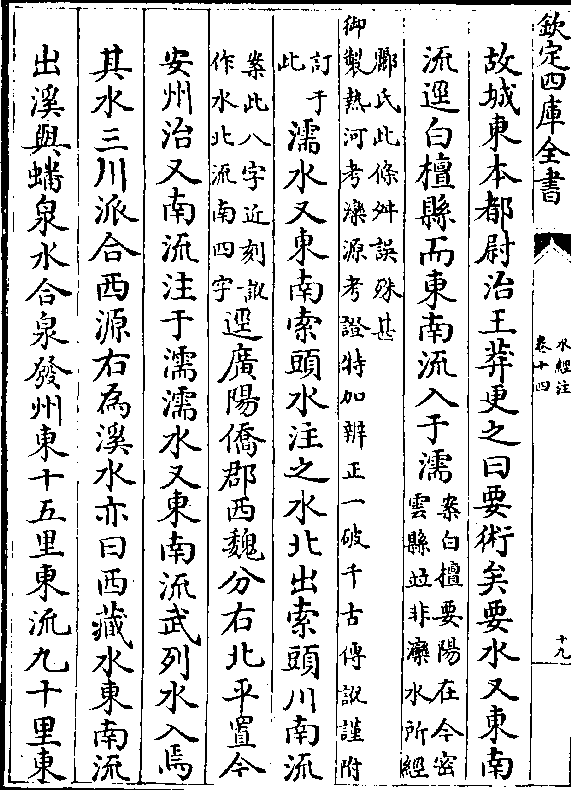 欽定四庫全書
水經注
卷十四
十九
故城東本都尉治王莽更之曰要術矣要水又東南
流逕白檀縣而東南流入于濡案白檀要陽在今密
雲縣竝非濡水所經
酈氏此條舛誤殊甚
御製熱河考濼源考證特加辨正一破千古傳訛謹附
訂于
此濡水又東南索頭水注之水北出索頭川南流
案此八字近刻訛
作水北流南四字逕廣陽僑郡西魏分右北平置今
安州治又南流注于濡濡水又東南流武列水入焉
其水三川派合西源右為溪水亦曰西藏水東南流
出溪與蟠泉水合泉發州東十五里東流九十里東